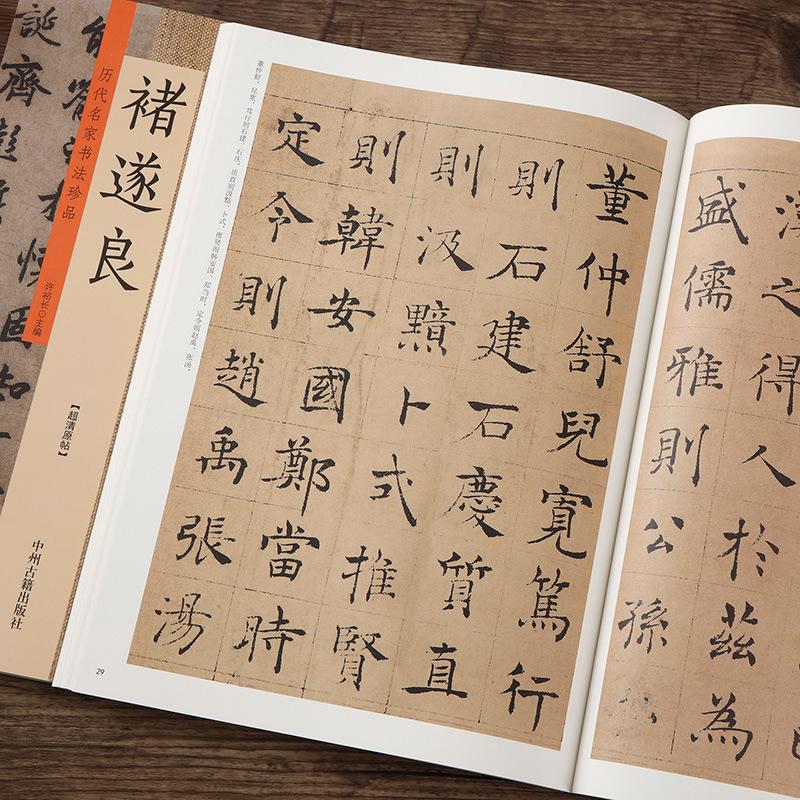 历代名家书法珍品
褚遂良
许裕长⊙主编
【超清原帖】
中州古籍出版社
漢之得人於茲為
盛儒雅則公孫
董仲舒兒寬篤行
則石建石慶質直
則汲黯卜式推賢
則韓安國鄭當時
定令則趙禹張湯
董仲舒、兒寬，笃行则石建、石庆，质直则汲黯、卜式，推贤则韩安国、郑当时，定令则赵禹、张汤，
29